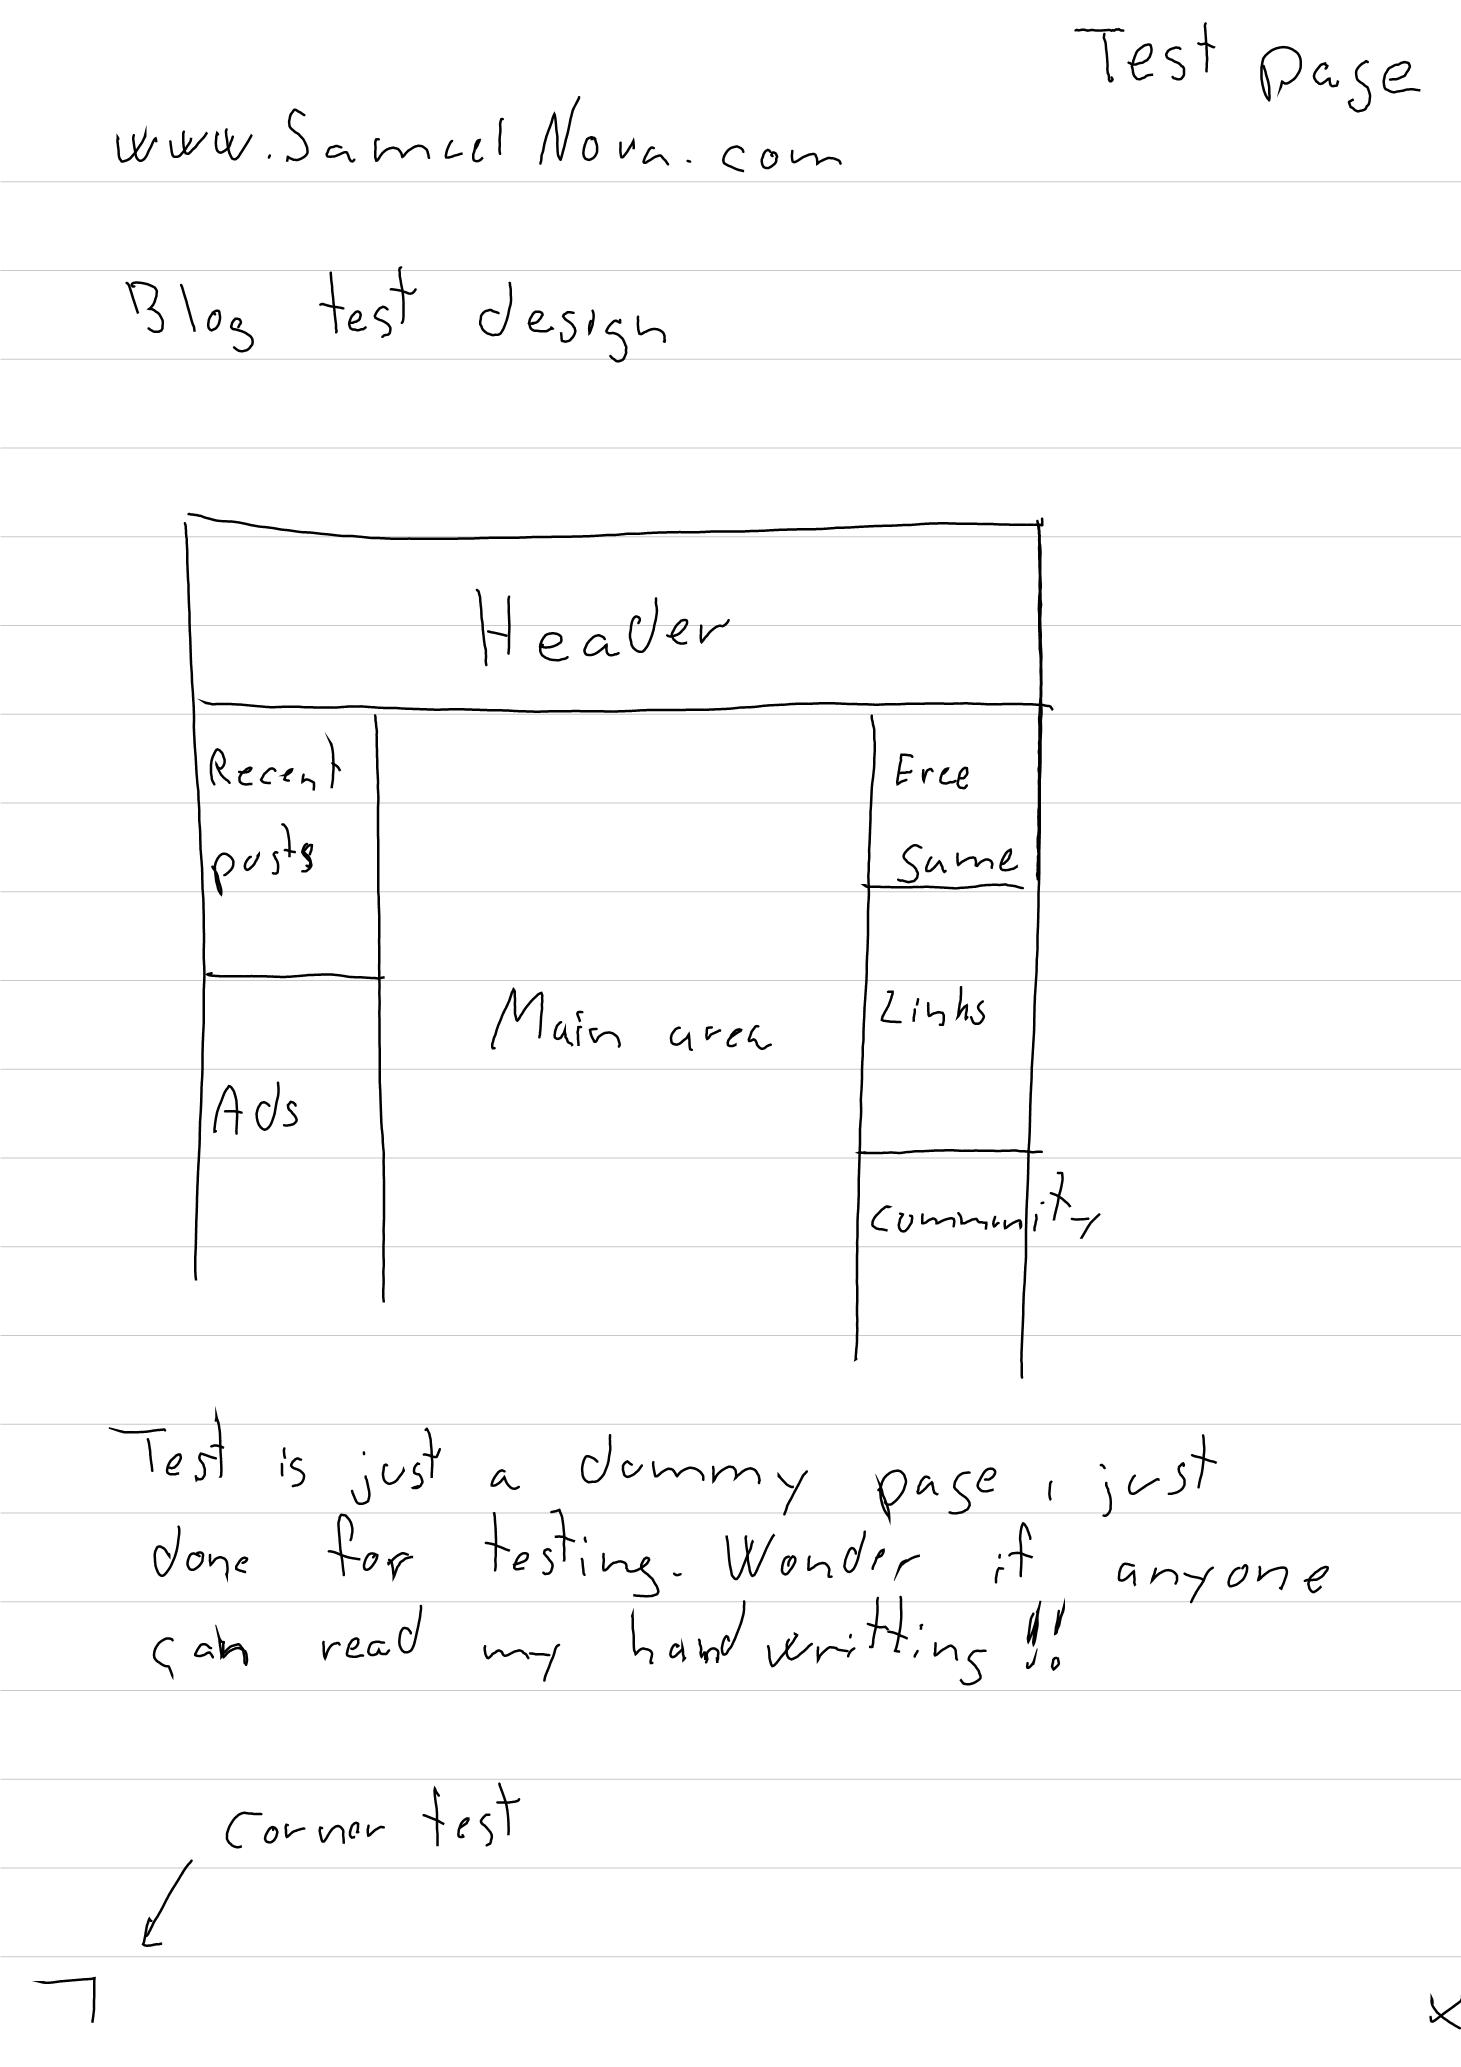 Test page
www.SamuelNova.com
Blog test design
Header
Recent
posts
Ads
Main area
Free
same
Links
community
Test is just a dummy page, just
done for testing. Wonder if anyone
can read my hand writting!!
Corner test
x